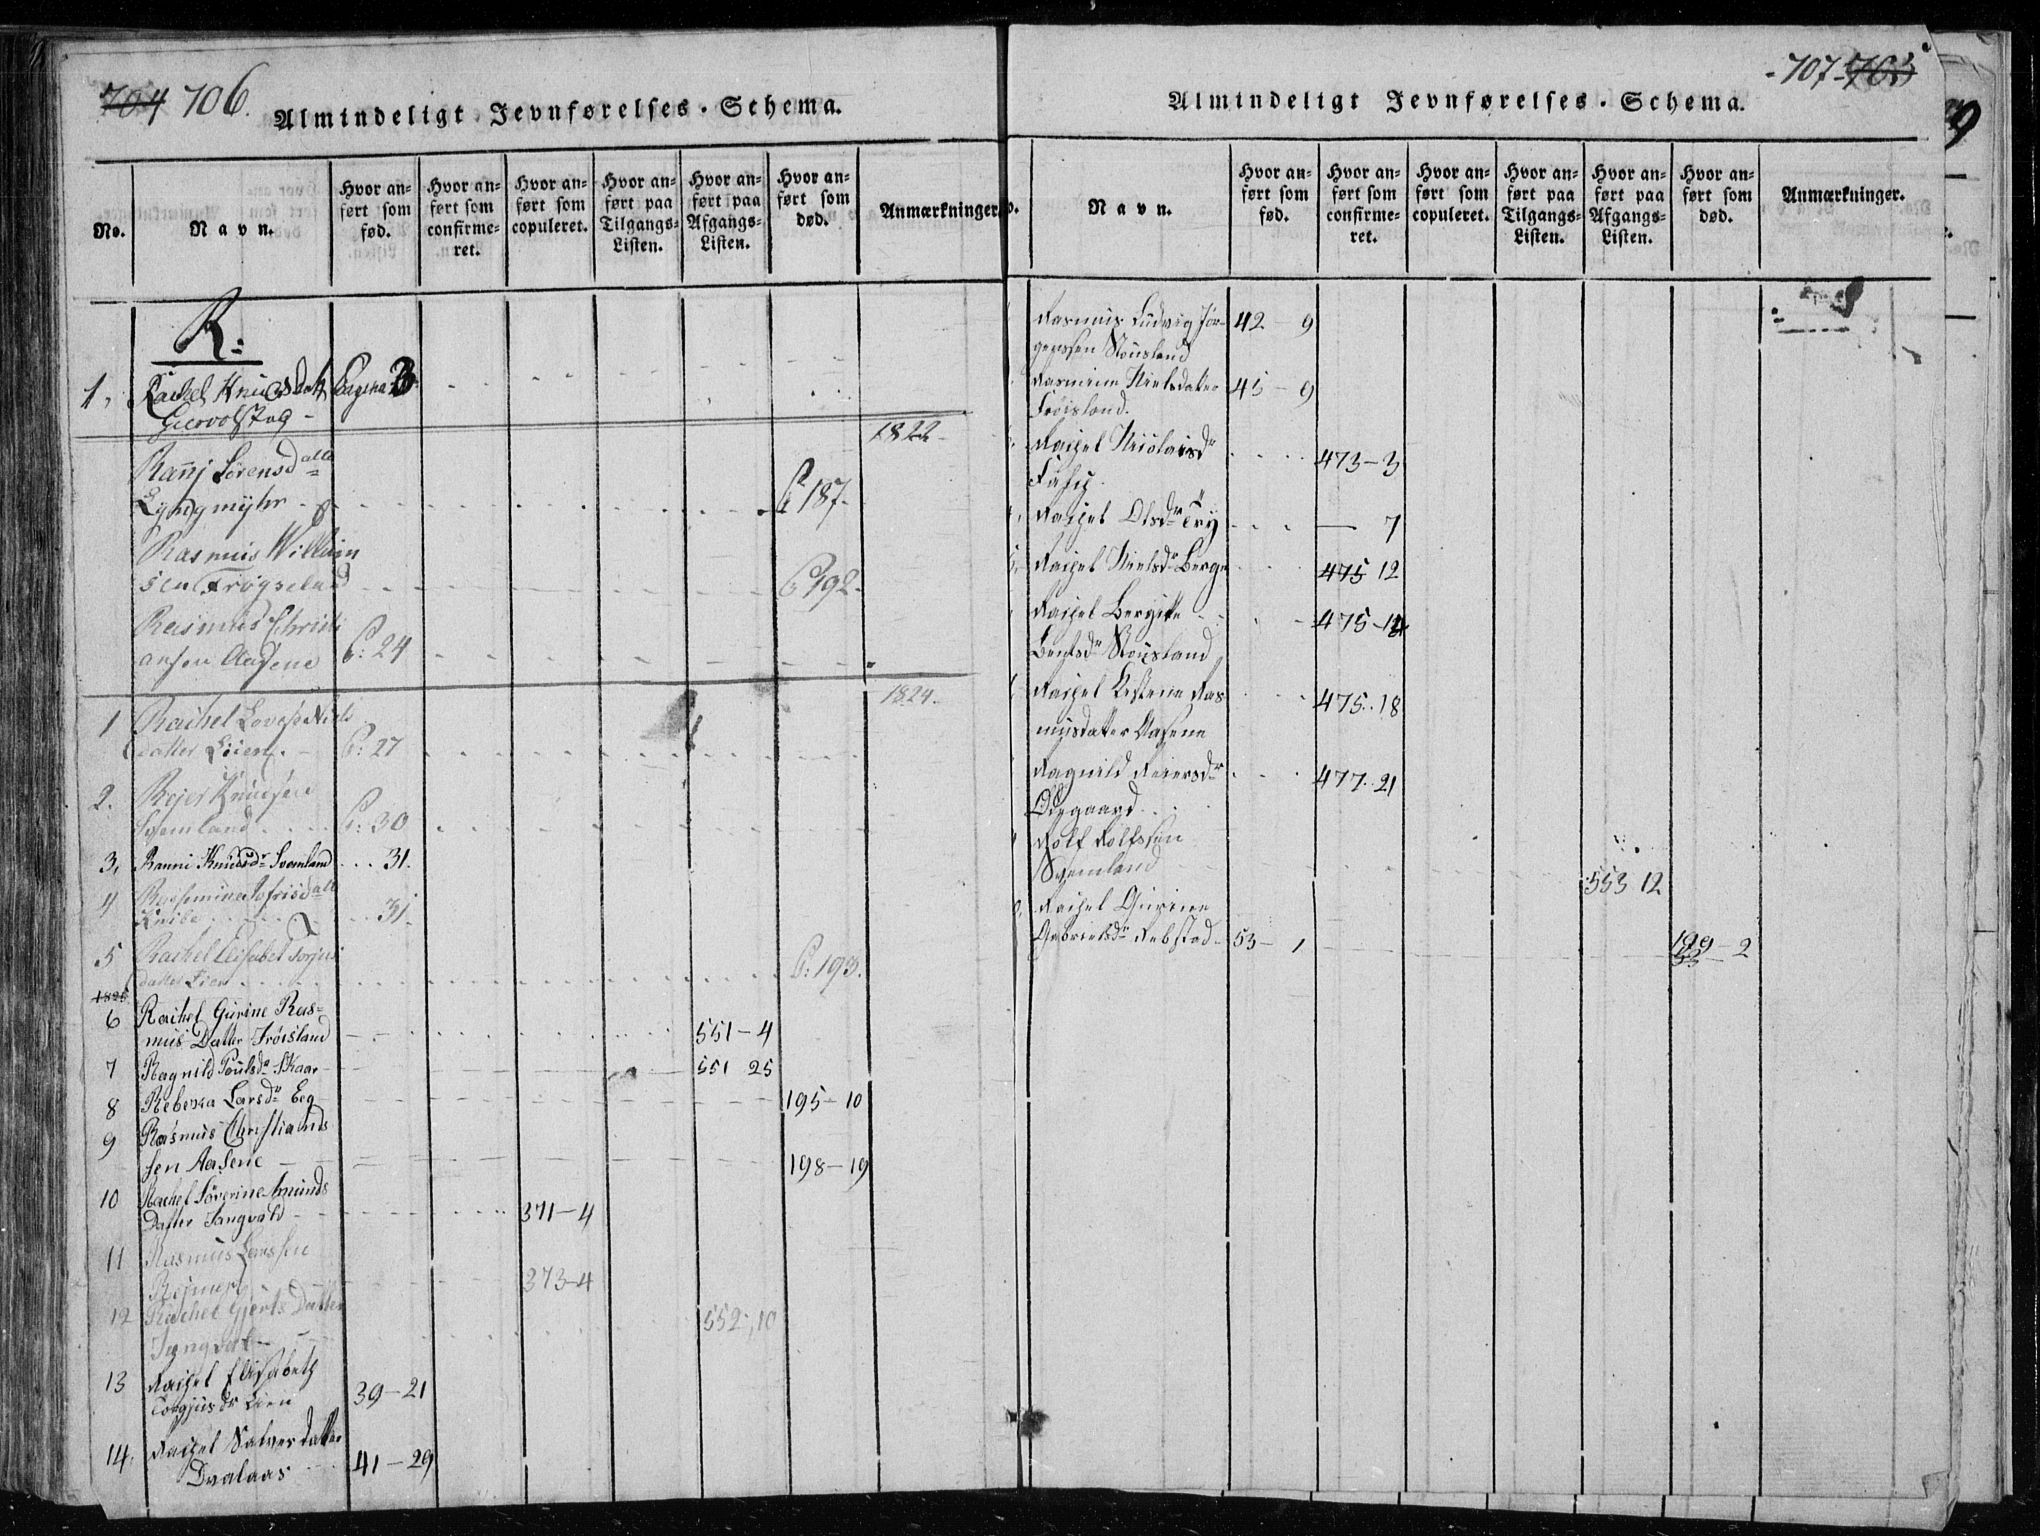 704 706.
Almindeligt Jevnførelses-Schema.
No.
Navn.
Hvor anført som fød.
Hvor anført som confirmeret.
Hvor anført som copuleret.
Hvor anført paa Tilgangs-Listen.
Hvor anført paa Afgangs-Listen.
Hvor anført som død.
Anmærkninger.
R:
1, Rachel Knudsdatt Pagina 3
Giervolstag -
1822-
Ranj Sørensdatt
Lyngmyhr - P 187-
Rasmus William
sen Frøyseland P 192-
Rasmus Christi
ansen Aasene P: 24
1824.
1 Rachel Lovise Niels
datter Lien. P: 27
2. Rejer Knudsen
Svemland P: 30
3, Ranni Knudsdr Svemland 31.
4 Rasemine datt
Knibe 31.
5 Rachel Elisabet Torjus
datter Lien P: 193.
1825
6 Rachel Gurine Ras=
mus Datter Frøisland 551-4
7 Ragnild Poulsdr Skaar 551 25
8 Rebecca Larsdr Eeg 195-10
9 Rasmus Christians
sen Aasene 198-19
10 Rachel Søverine Amunds
Datter Tangvald 371-4
11 Rasmus Larssen
373-4
12 Rachel Gjerts Datter
552,10
13 Rachel Elisabeth
Torgjusdr Lien 39-21
14. Rachel Salvesdatter
Dvalaas 41-29
-707-705
Almindeligt Jevnførelses-Schema.
Navn.
Hvor anført som fød.
Hvor anført som confirmeret.
Hvor anført som copuleret.
Hvor anført paa Tilgangs-Listen.
Hvor anført paa Afgangs-Listen.
Hvor anført som død.
Anmærkninger.
Rasmus Ludvig Jør- 42-9
genssen Stousland
Rasmine Nielsdatter 45-9
Frøisland.
Rachel Nicolaisdr 473-3
Rachel Olsdr Try — 7
Rachel Nielsdr Berge 475 12
Rachel Bergitte 475-14
Bentsdr Stousland
Rachel Kistine Ras 475..18
musdatter Aasene
Ragnild Reiersdr 477..21
Ødegaard
Rolf Rolfssen
Svemland 553 12
Rachel Gurine
Gabrielsdr Rebstad 53-1 199-2